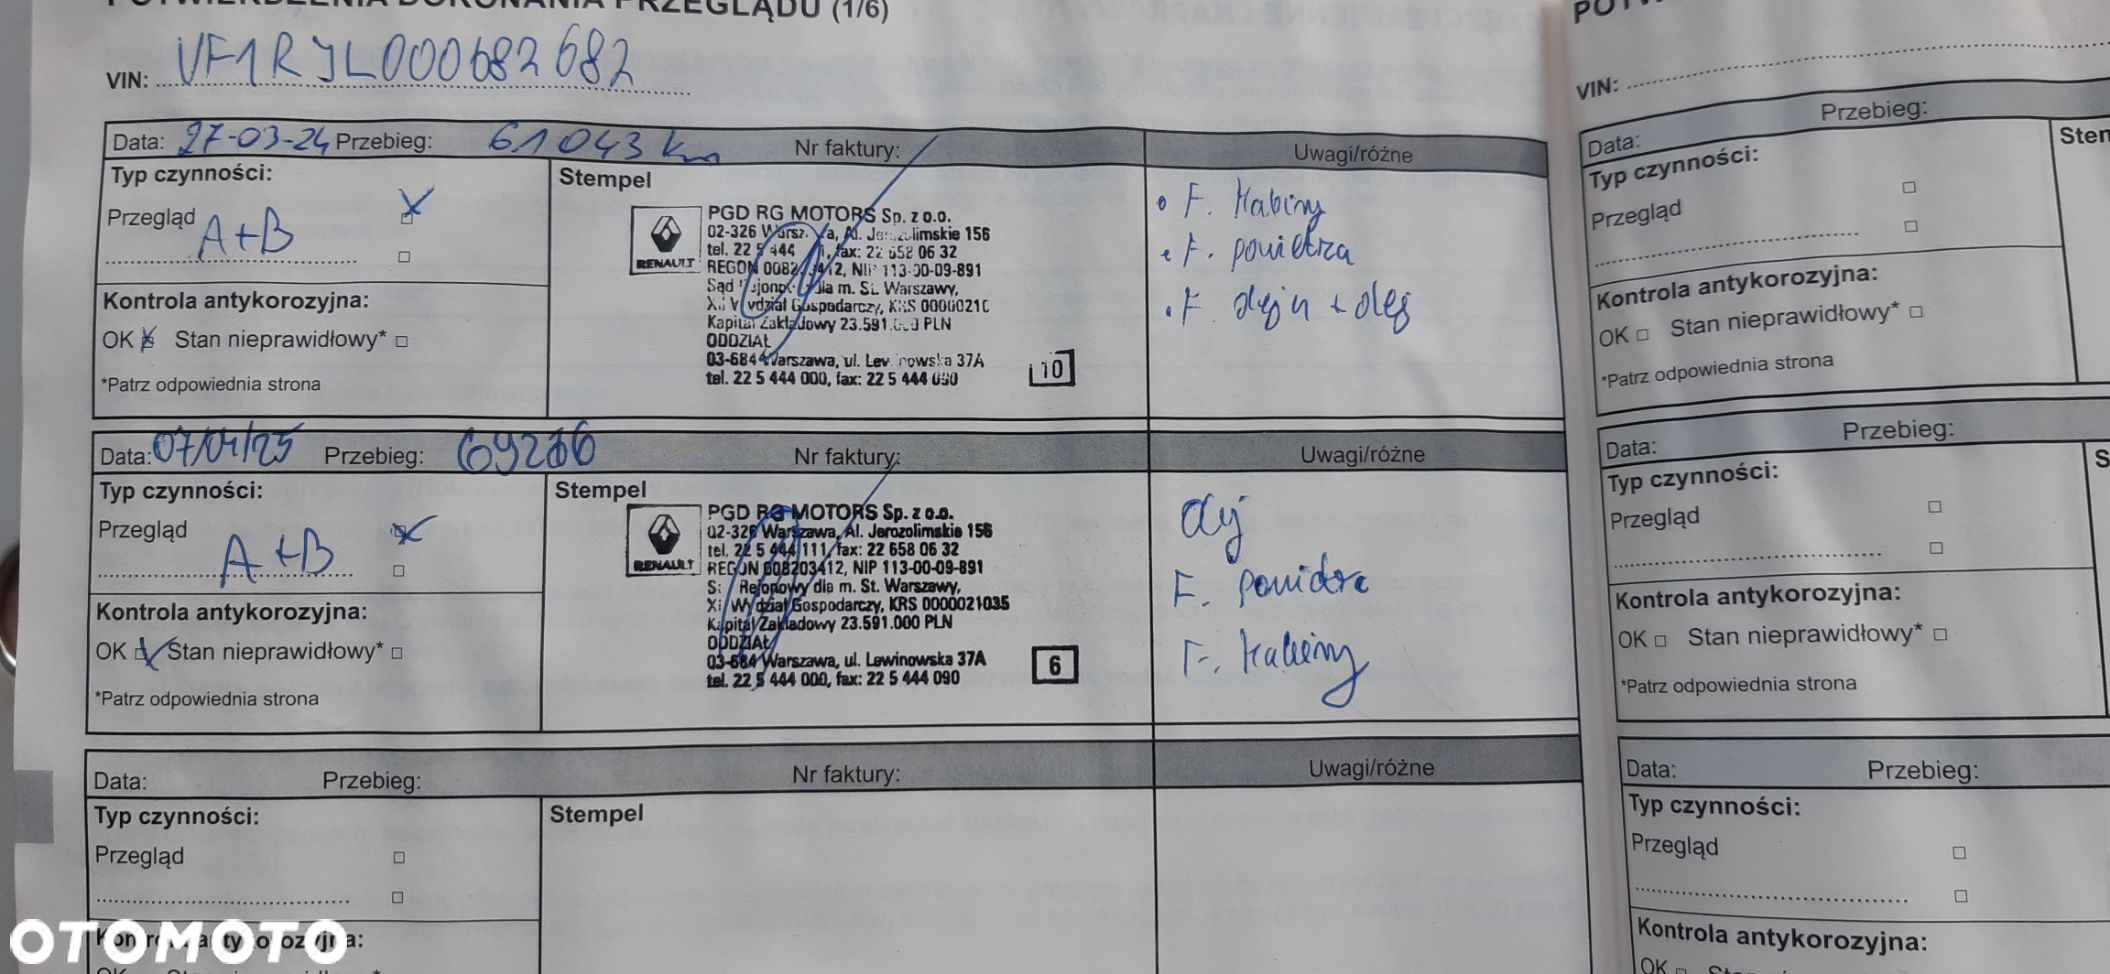 POTWIERDZENIA DOKONANIA PRZEGLĄDU (1/6)
VIN: VF1RJL000682682
Data: 27-03-24 Przebieg: 61043 km Nr faktury: Uwagi/różne
Typ czynności:
Przegląd A+B
Kontrola antykorozyjna:
OK Stan nieprawidłowy*
*Patrz odpowiednia strona
Stempel
RENAULT
PGD RG MOTORS Sp. z o.o.
02-326 Warsz a, Al. Je limskie 156
tel. 22 5 444 fax: 22 658 06 32
REGON 0082 412, NIP 113-00-09-891
Sąd dla m. St. Warszawy,
Gospodarczy, KRS 0000210
Kapitał Zakładowy 23.591. PLN
ODDZIAŁ
03-684 Warszawa, ul. Lewinowska 37A
tel. 22 5 444 000, fax: 22 5 444 090
10
F. Kabiny
F. powietrza
F. oleju + olej
Data: 07/04/25 Przebieg: Nr faktury: Uwagi/różne
Typ czynności:
Przegląd A+B
Kontrola antykorozyjna:
OK Stan nieprawidłowy*
*Patrz odpowiednia strona
Stempel
RENAULT
PGD RG MOTORS Sp. z o.o.
02-326 Warszawa, Al. Jerozolimskie 156
tel. 22 5 444 111, fax: 22 658 06 32
REGON 008203412, NIP 113-00-09-891
Rejonowy dla m. St. Warszawy,
XI Wydział Gospodarczy, KRS 0000021035
Kapitał Zakładowy 23.591.000 PLN
ODDZIAŁ
03-684 Warszawa, ul. Lewinowska 37A
tel. 22 5 444 000, fax: 22 5 444 090
6
olej
F. powietrza
F. Kabiny
Data: Przebieg: Nr faktury: Uwagi/różne
Typ czynności:
Przegląd
Kontrola antykorozyjna:
OK Stan nieprawidłowy*
Stempel
OTOMOTO
VIN:
Data: Przebieg:
Typ czynności:
Przegląd
Kontrola antykorozyjna:
OK Stan nieprawidłowy*
*Patrz odpowiednia strona
Data: Przebieg:
Typ czynności:
Przegląd
Kontrola antykorozyjna:
OK Stan nieprawidłowy*
*Patrz odpowiednia strona
Data: Przebieg:
Typ czynności:
Przegląd
Kontrola antykorozyjna:
OK